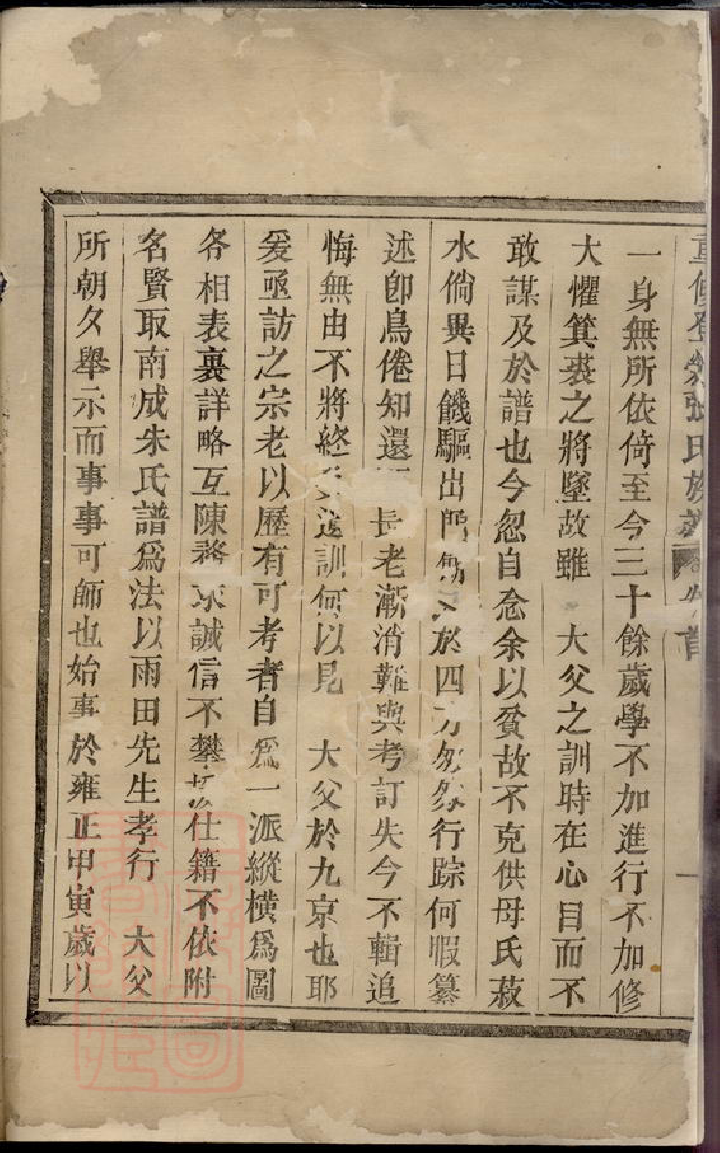 重修登榮張氏族譜 卷首 一
一身無所依倚至今三十餘歲學不加進行不加修
大懼箕裘之將墜故雖 大父之訓時在心目而不
敢謀及於譜也今忽自念余以貧故不克供母氏菽
水倘異日饑驅出門 於四方忽忽行踪何暇纂
述卽鳥倦知還 長老漸消難與考訂失今不輯追
悔無由不將終 訓何以見 大父於九京也耶
爰亟訪之宗老以歷有可考者自爲一派縱橫爲圖
各相表裏詳略互陳務求誠信不攀 仕籍不依附
名賢取南成朱氏譜爲法以雨田先生孝行 大父
所朝夕舉示而事事可師也始事於雍正甲寅歲以